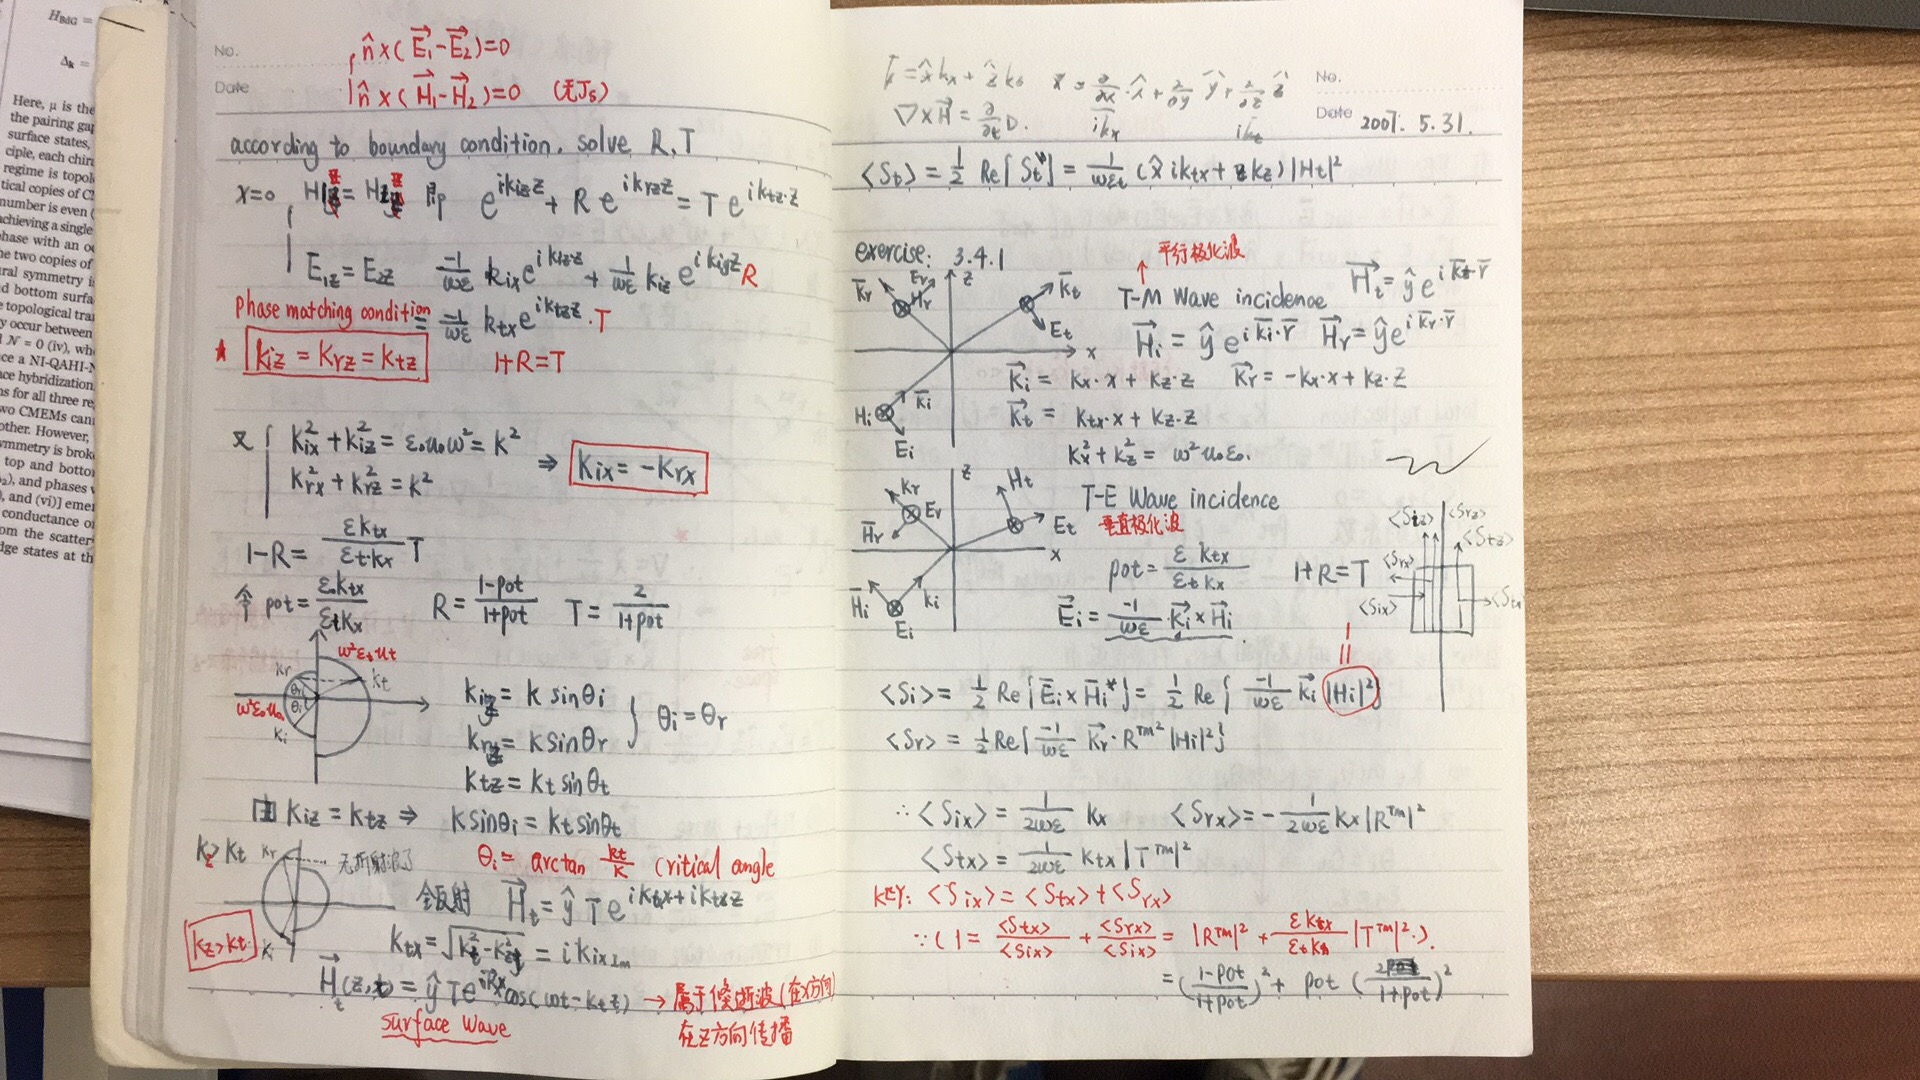 H_BdG =
Δ_k =
Here, μ is the
the pairing gap
surface states,
ciple, each chir
regime is topol
tical copies of C
number is even (
achieving a single
phase with an o
two copies of
ral symmetry i
d bottom surfa
e topological tra
y occur between
N = 0 (iv), wh
ce a NI-QAHI-N
ace hybridization
ns for all three re
wo CMEMs can
other. However,
mmetry is brok
top and botto
), and phases v
, and (vi)] eme
conductance o
om the scatter
dge states at th
No.
Date
n̂×(E⃗₁-E⃗₂)=0
n̂×(H⃗₁-H⃗₂)=0 (无Js)
according to boundary condition, solve R,T
x=0 即 e^{ik_{iz}z} + R e^{ik_{rz}z} = T e^{ik_{tz}·z}
E₁z = E₂z -1/ωε k_{ix} e^{ik_{iz}z} + 1/ωε
Phase matching condition
= -1/ωε k_{tx} e^{ik_{tz}z} · T
k_{iz} = k_{rz} = k_{tz} 1+R=T
又 k²_{ix} + k²_{iz} = ε₀u₀ω² = k²
k²_{rx} + k²_{rz} = k² ⇒ k_{ix} = -k_{rx}
1-R = εk_{tx}/ε_t·k_x T
令 pot = ε₀k_{tx}/ε_t k_x R = 1-pot/1+pot T = 2/1+pot
ω²ε_t u_t
kr kt
θr
θi
ω²ε₀u₀
ki
k_{iz} = k sinθi
k_{rz} = k sinθr } θi = θr
k_{tz} = kt sinθt
由 k_{iz} = k_{tz} ⇒ k sinθi = kt sinθt
kz > kt kr 无折射波了
θi = arctan kt/k critical angle
全反射 H⃗t = ŷ T e^{ik_{tx}x+ik_{tz}z}
kz > kt
k_{tx} = √(k²_t - k²_z) = i k_{ixIm}
H⃗t(z,t) = ŷ T cos(ωt - k_{tz}z) → 属于倏逝波(在x方向)
surface wave 在z方向传播
k̄ = x̂kx + ẑkz
∇×H⃗ = ∂/∂t D.
ik_x
No.
Date 2007. 5. 31.
<St> = 1/2 Re[St*] = 1/ωεt (x̂ ik_{tx} + z k_z)|Ht|²
exercise: 3.4.1
平行极化波
T-M Wave incidence H⃗t = ŷ e^{i k̄t·r̄}
H⃗i = ŷ e^{i k̄i·r̄} H⃗r = ŷ e^{i k̄r·r̄}
k̄r Er Hr z k̄t Et x
k⃗i = kx·x + kz·z k⃗r = -kx·x + kz·z
Hi k̄i Ei
k⃗t = k_{tx}·x + kz·z
k²x + k²z = ω²u₀ε₀.
T-E Wave incidence
垂直极化波
kr Er H̄r z Ht Et x
pot = ε k_{tx}/εt kx 1+R=T
H̄i ki Ei
E⃗i = -1/ωε · k⃗i × H⃗i
<Srz>
<Stz>
<Srx>
<Six>
1
<Si> = 1/2 Re{Ēi×H̄i*} = 1/2 Re{-1/ωε k⃗i |Hi|²}
<Sr> = 1/2 Re{-1/ωε k⃗r · R^{TM²} |Hi|²}
∴ <Six> = 1/2ωε kx <Srx> = -1/2ωε kx |R^{TM}|²
<Stx> = 1/2ωε k_{tx} |T^{TM}|²
KEY: <Six> = <Stx> + <Srx>
∵ (1 = <Stx>/<Six> + <Srx>/<Six> = |R^{TM}|² + |T^{TM}|²·).
= (1-pot/1+pot)² + pot